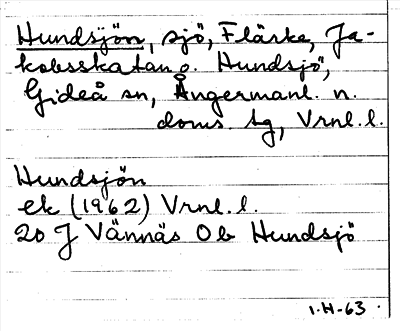 Hundsjön, sjö, Flärke, Ja-
kobsskatan o. Hundsjö,
Gideå sn, Ångermanl. n.
doms. tg, Vrnl. l.
Hundsjön
ek (1962) Vrnl. l.
20 J Vännäs Ob Hundsjö
1-H-63